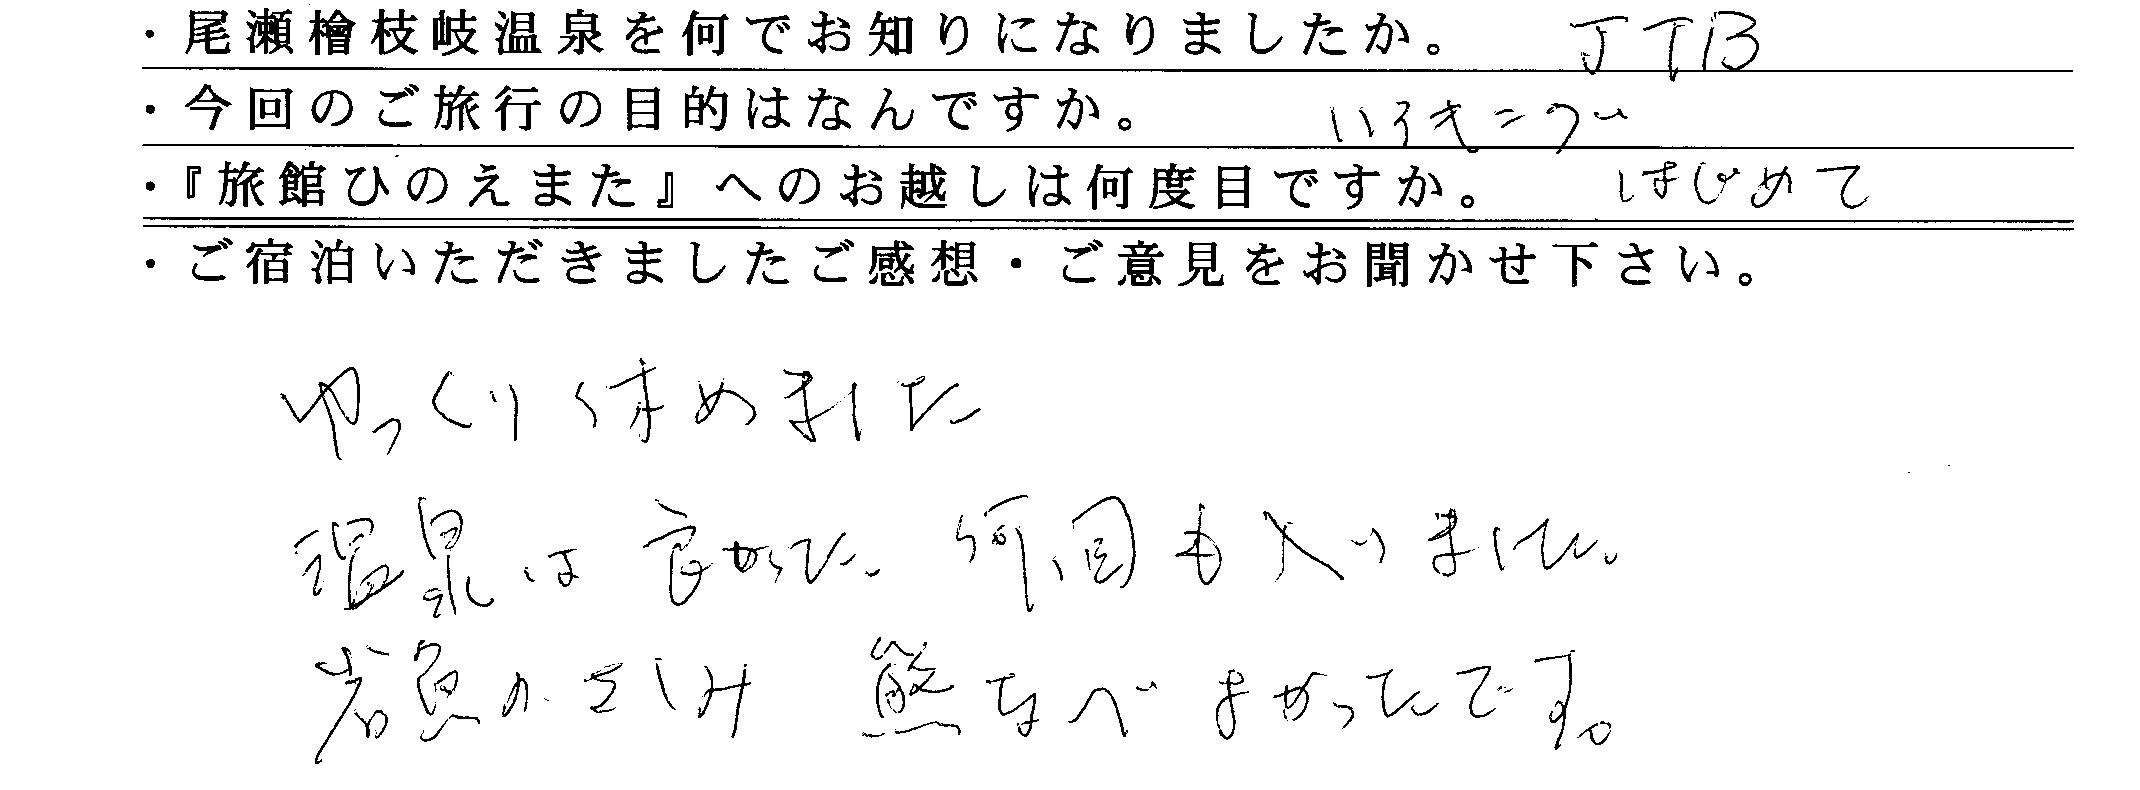 ・尾瀬檜枝岐温泉を何でお知りになりましたか。 JTB
・今回のご旅行の目的はなんですか。
・『旅館ひのえまた』へのお越しは何度目ですか。 はじめて
・ご宿泊いただきましたご感想・ご意見をお聞かせ下さい。
ゆっくり休めました
温泉は良かった。何回も入りました。
岩魚のさしみ 熊なべ よかったです。